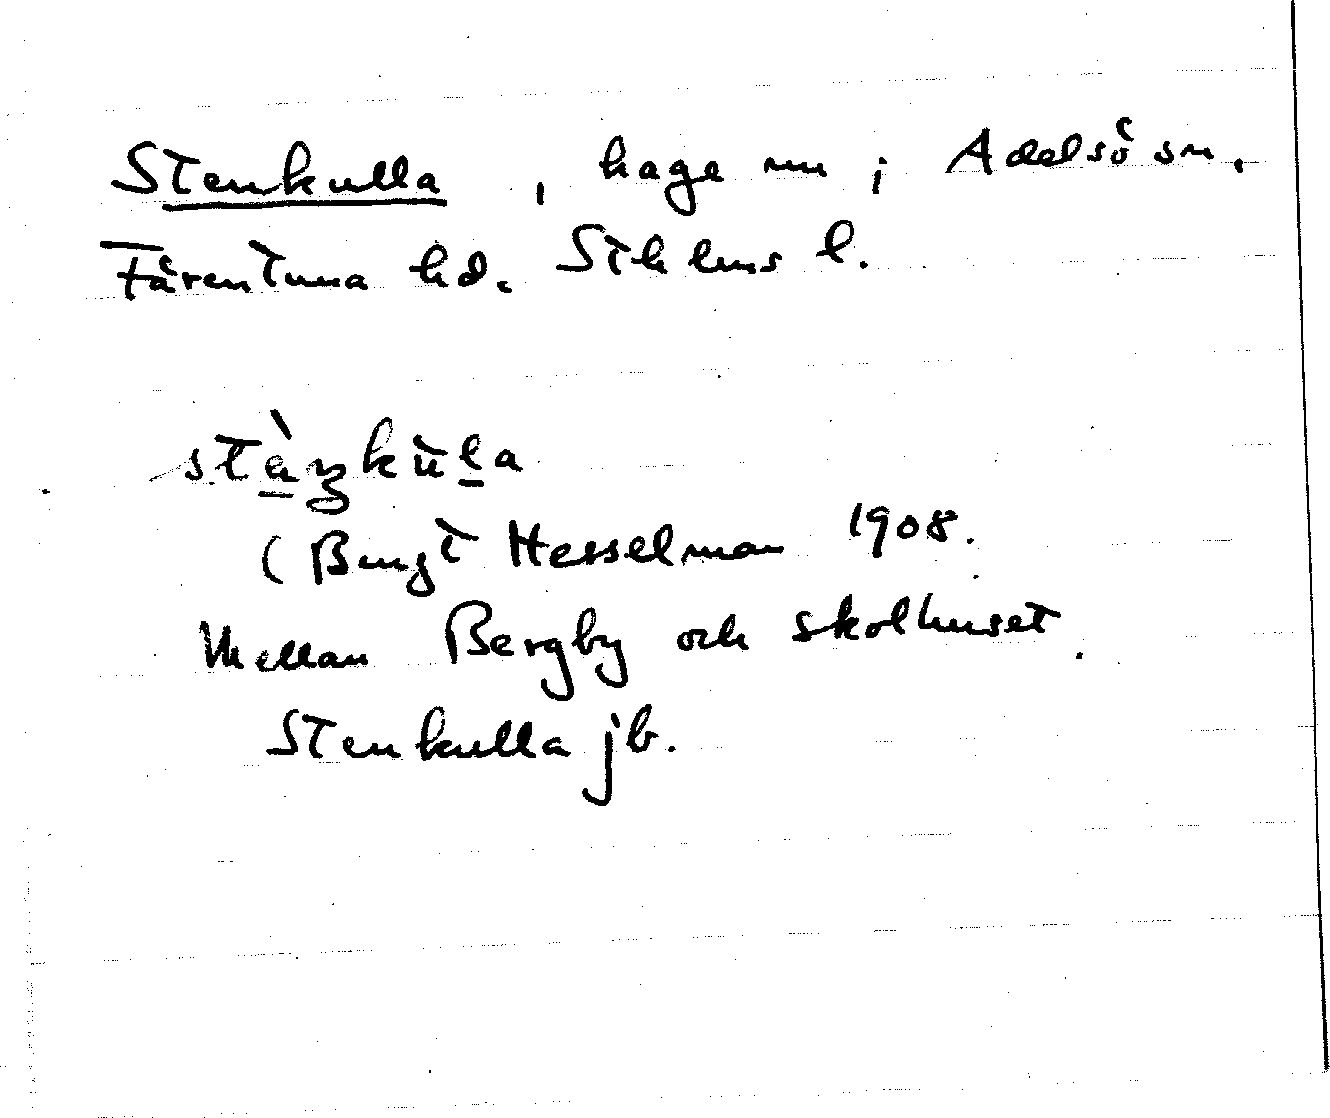 Stenkulla, hage nu i Adelsö sn.
Färentuna hd. Sthlms l.
stàŋkùla
(Bengt Hesselman 1908.
Mellan Bergby och skolhuset.
Stenkulla jb.